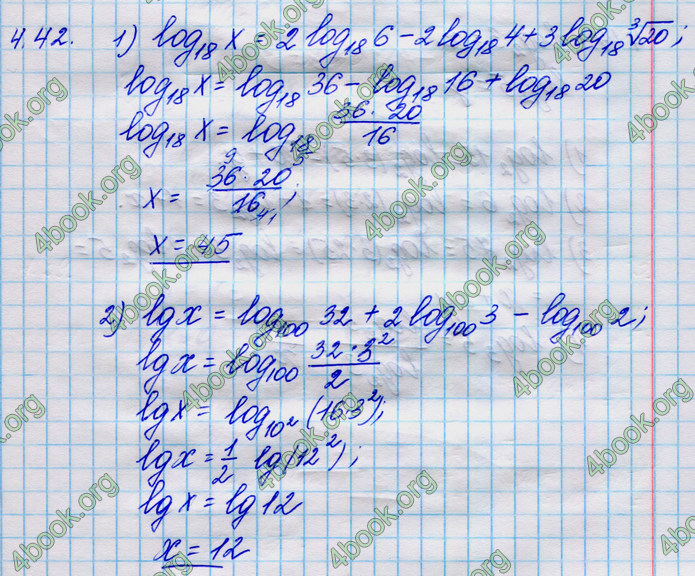 4.42. 1) log₁₈ x = 2 log₁₈ 6 − 2 log₁₈ 4 + 3 log₁₈ ∛20;
log₁₈ x = log₁₈ 36 − log₁₈ 16 + log₁₈ 20
log₁₈ x = log₁₈ (36 · 20)/16
9 5
x = (36 · 20)/16;
4 1
x = 45
2) lg x = log₁₀₀ 32 + 2 log₁₀₀ 3 − log₁₀₀ 2;
lg x = log₁₀₀ (32 · 3²)/2
lg x = log₁₀² (16·3²);
lg x = 1/2 lg (12²);
lg x = lg 12
x = 12
4book.org